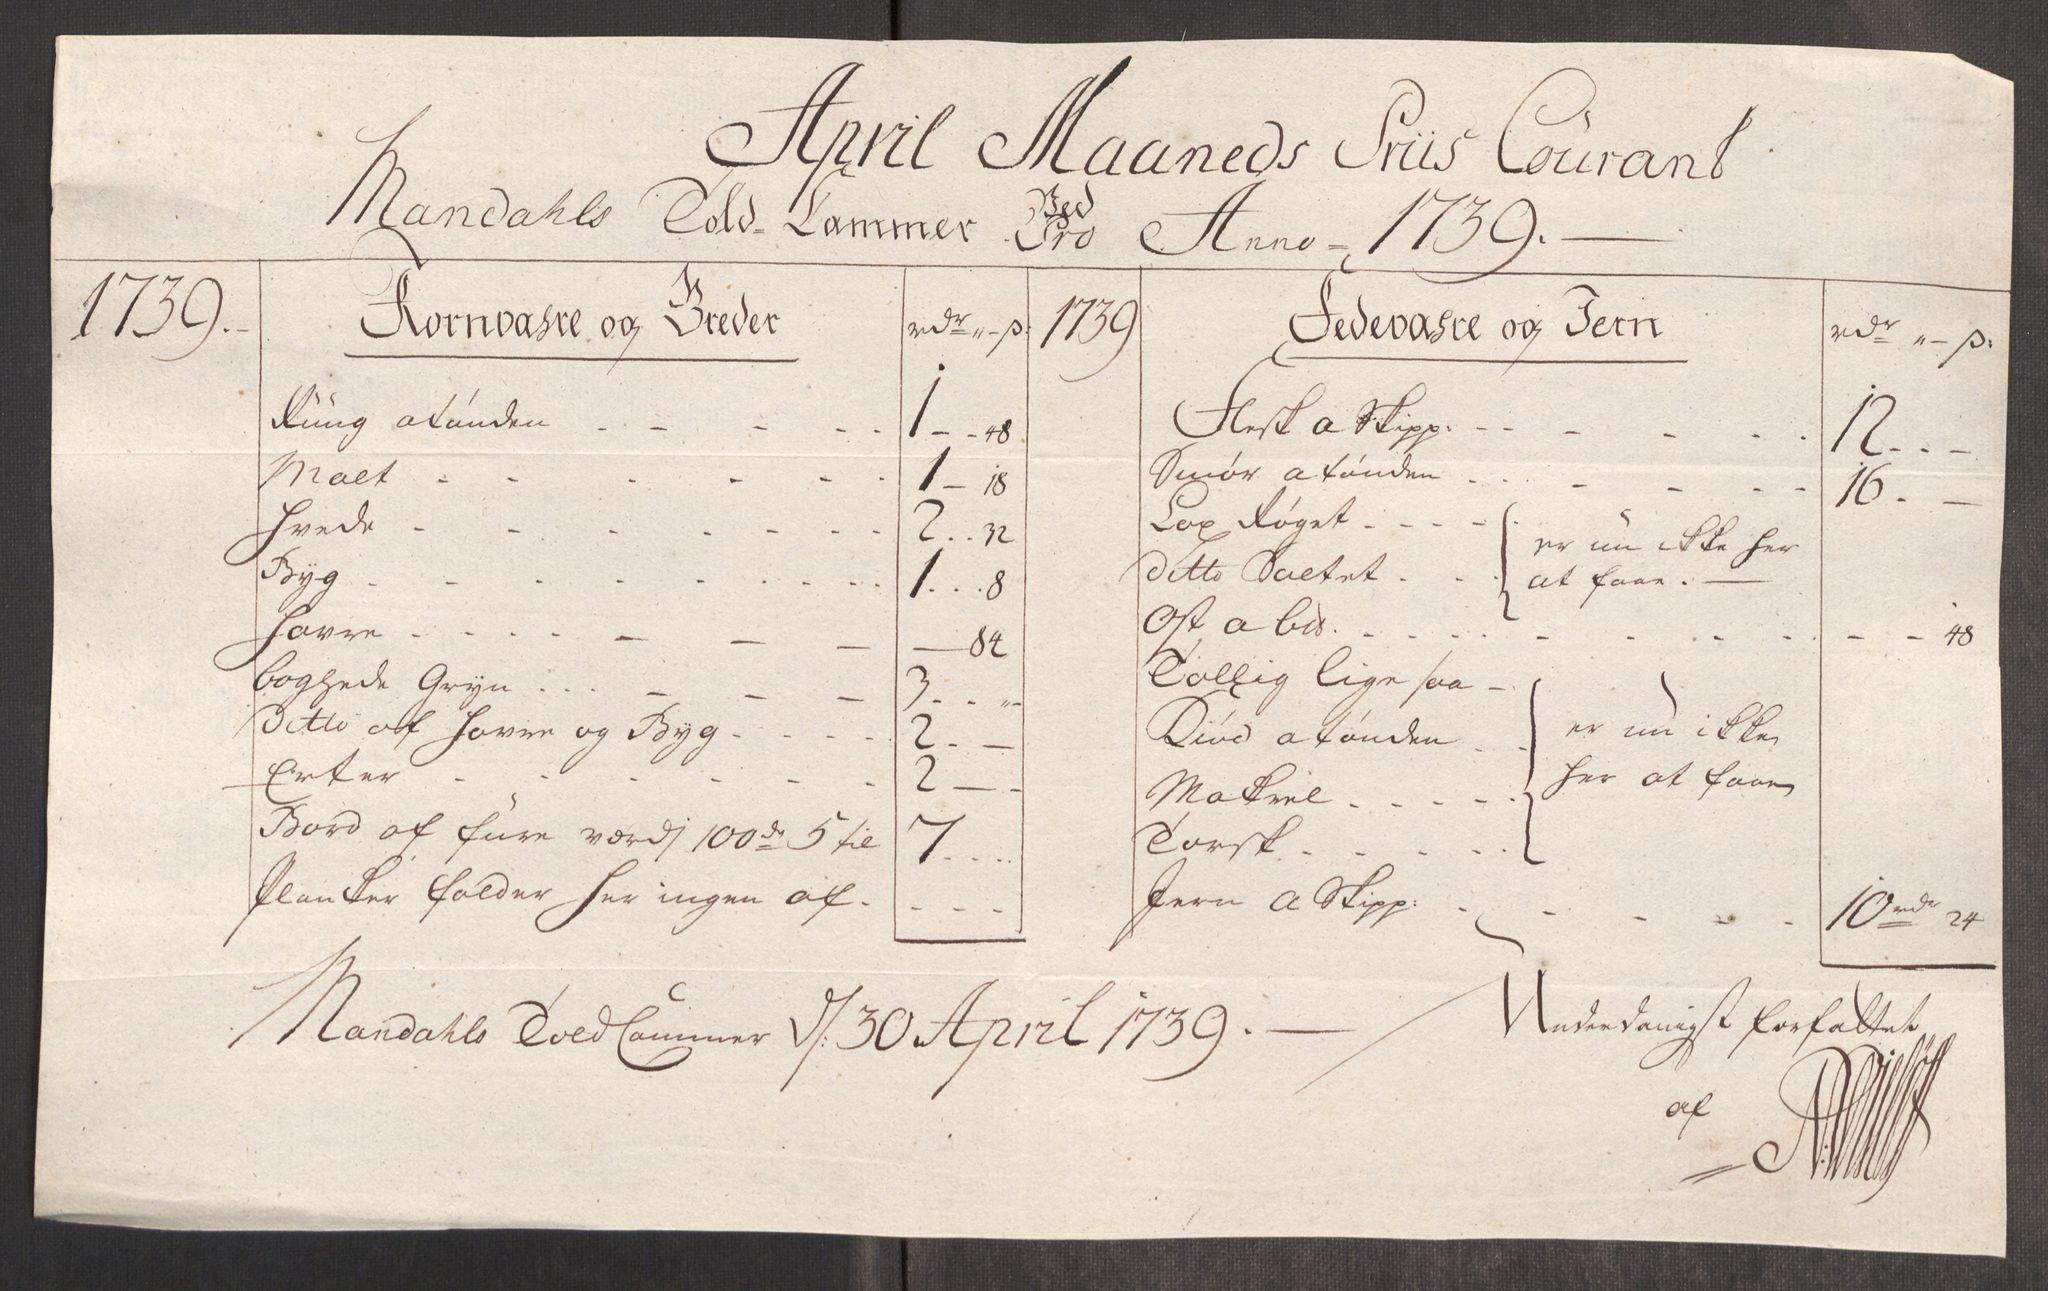 April Maaneds Priis Courant
Ved
Mandahls Told-Cammer Pro Anno 1739.
1739. Kornvahre og Breder rdr ß:
Rüug a tønden 1 48
Malt 1 18
Hvede 2 32
Byg 1 8
Havre 84
boghede Gryn 3
Ditto af Havre og Byg 2
Erter 2
Bord af füre 100de 5 til 7
Planker falder her ingen af.
1739 Fedevahre og Jern rdr ß:
Flesk a Skipp: 12
Smør a tønden 16
Lax Røget
er nu ikke her
Ditto Saltet
at faae.
Ost a bid. 48
Tallig lige saa
Kiød a tønden
er nu ikke
Makriel
her at faae
Torsk
Jern a Skipp: 10 rdr 24
Mandahls Told Cammer d: 30 April 1739.
Underdanigst forfattet
af